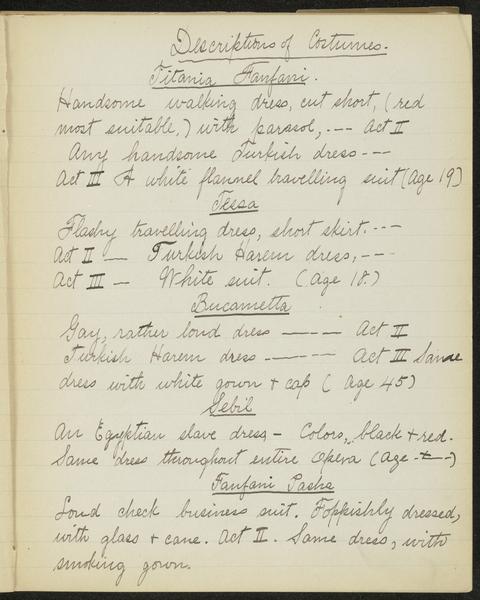 Descriptions of Costumes.
Titania Fanfani.
Handsome walking dress, cut short, (red
most suitable,) with parasol, --- Act II
Any handsome Turkish dress ---
Act III A white flannel travelling suit (Age 19)
Tessa
Flashy travelling dress, short skirt. ---
Act II — Turkish Harem dress, ---
Act III — White suit. (Age 18.)
Bucametta
Gay, rather loud dress ——— Act II
Turkish Harem dress ———— Act III Same
dress with white gown + cap (Age 45)
Sebil
An Egyptian slave dress – Colors, black + red.
Same dress throughout entire Opera (Age ---)
Fanfani Pasha
Loud check business suit. Foppishly dressed,
with glass + cane. Act II. Same dress, with
smoking gown.